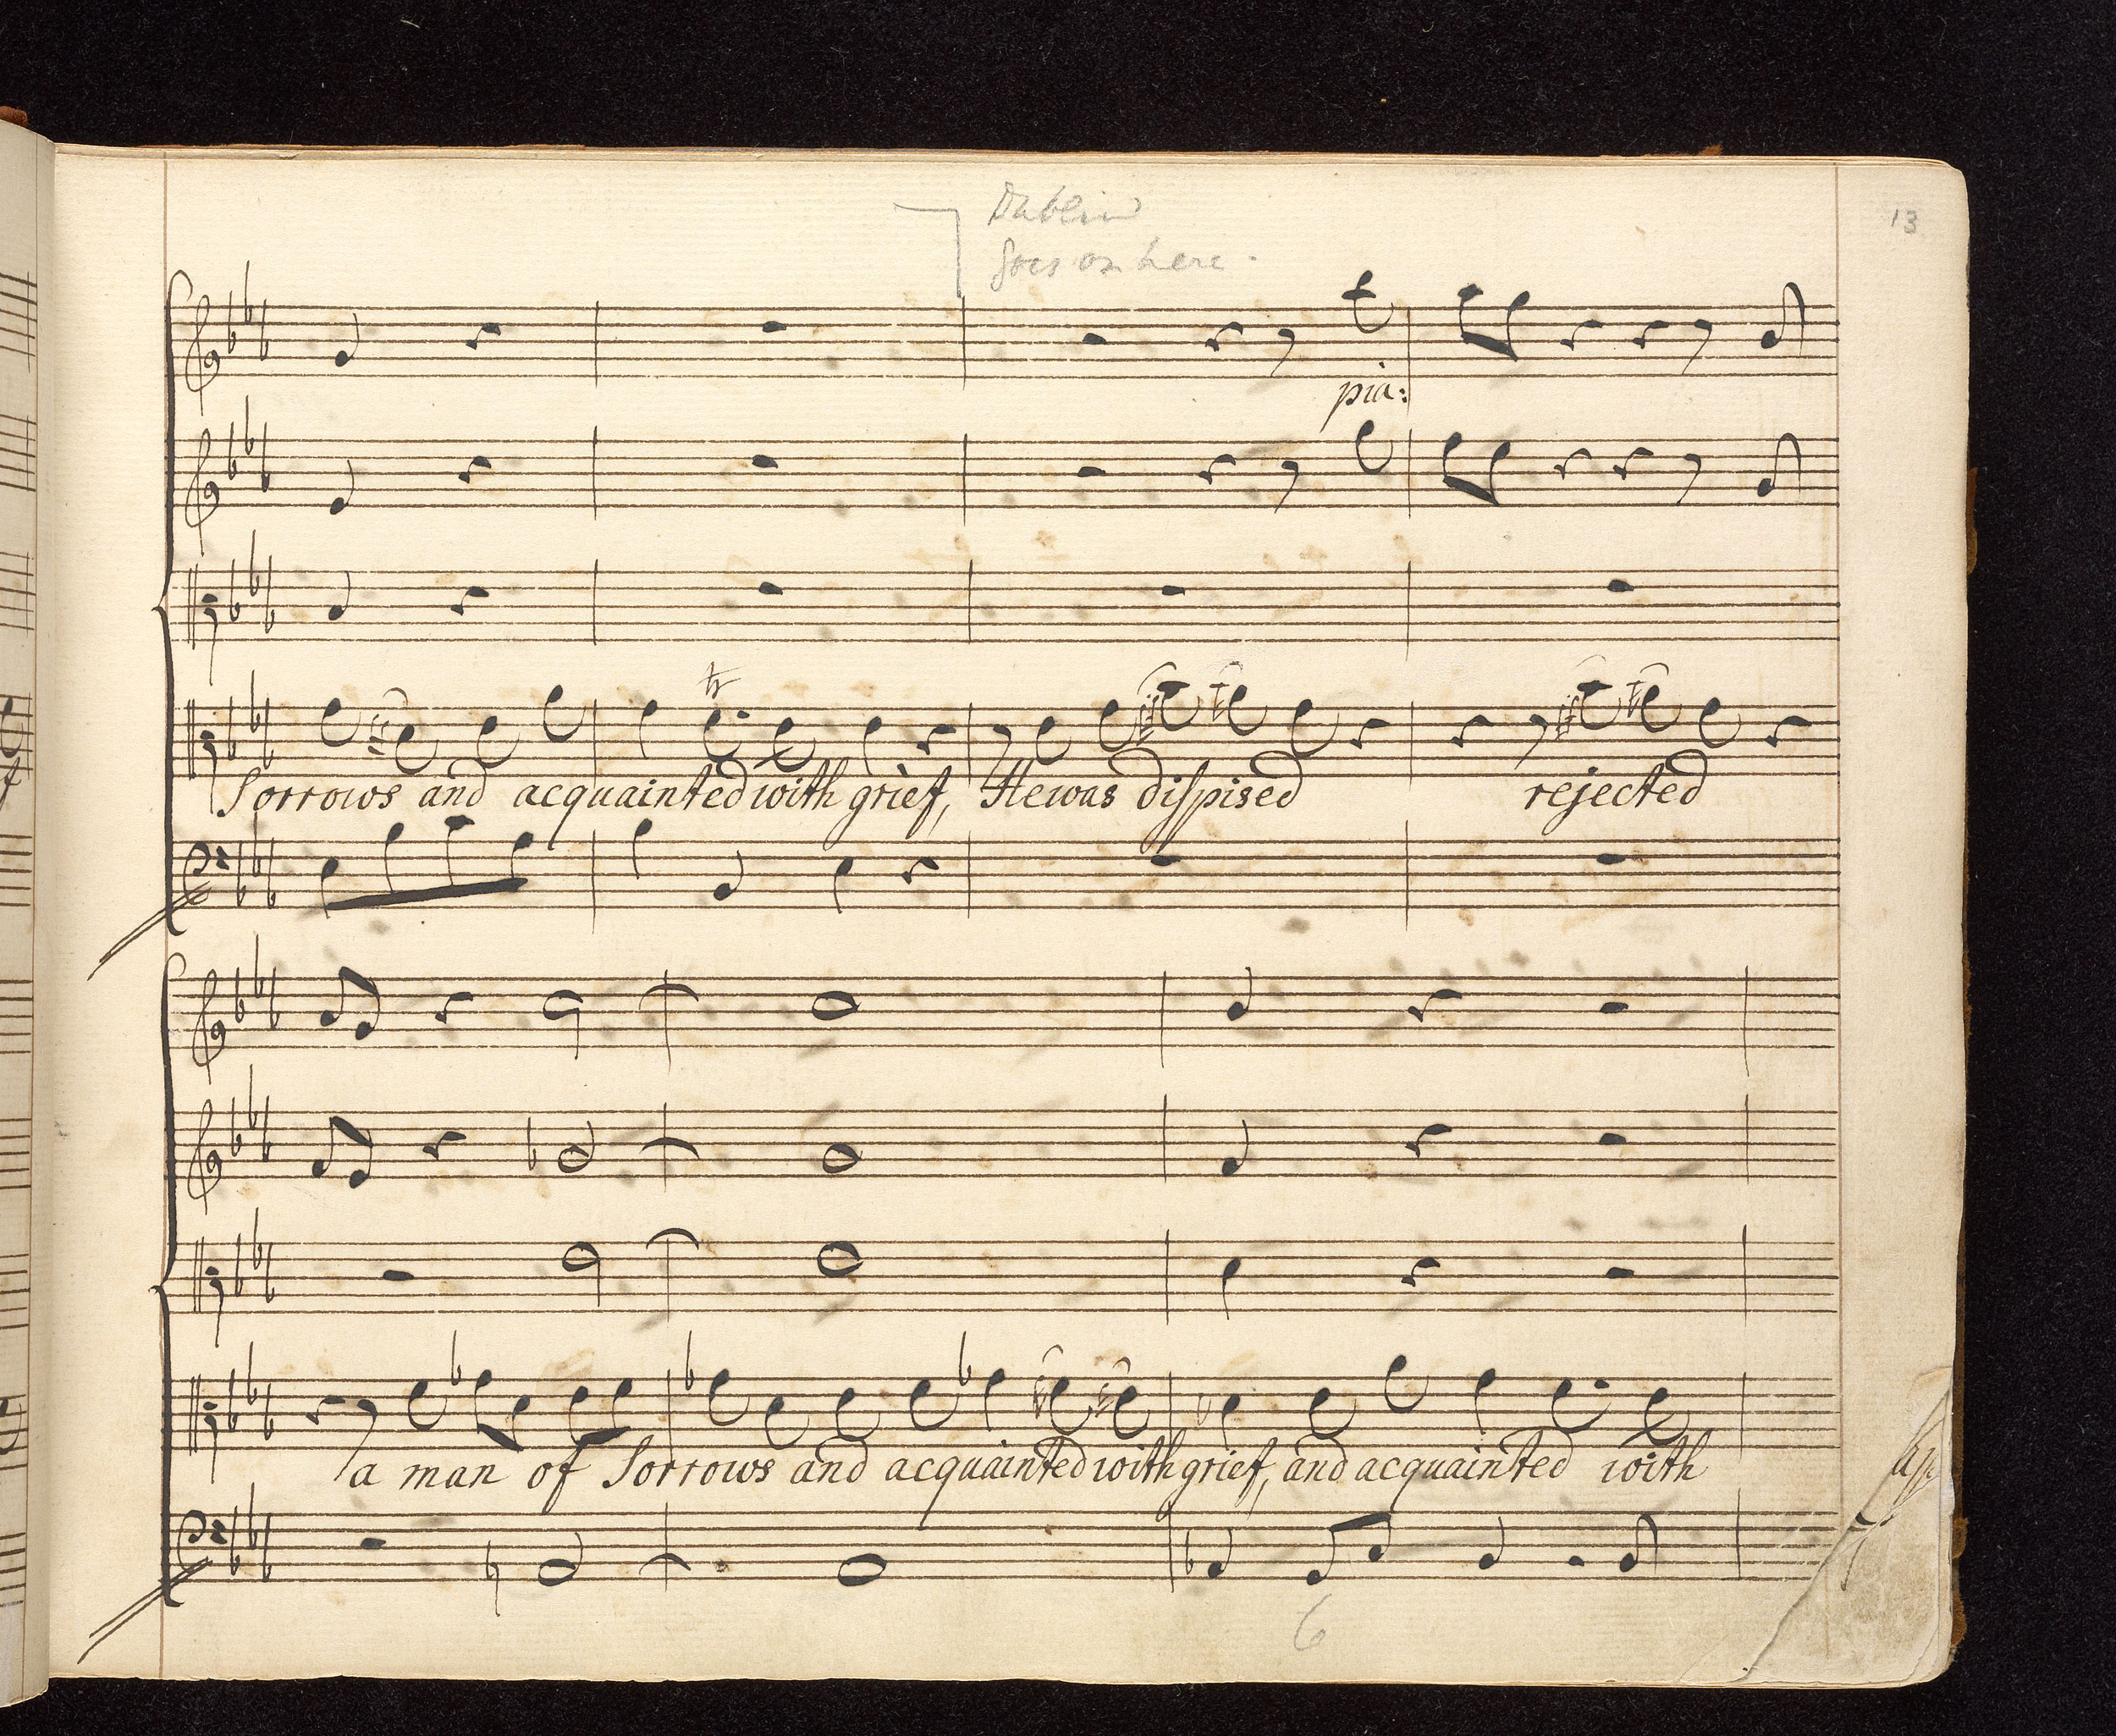 Dublin
13
Goes on here.
pia:
tr
Sorrows and acquainted with grief, He was dispised rejected
a man of Sorrows and acquainted with grief, and acquainted with
6